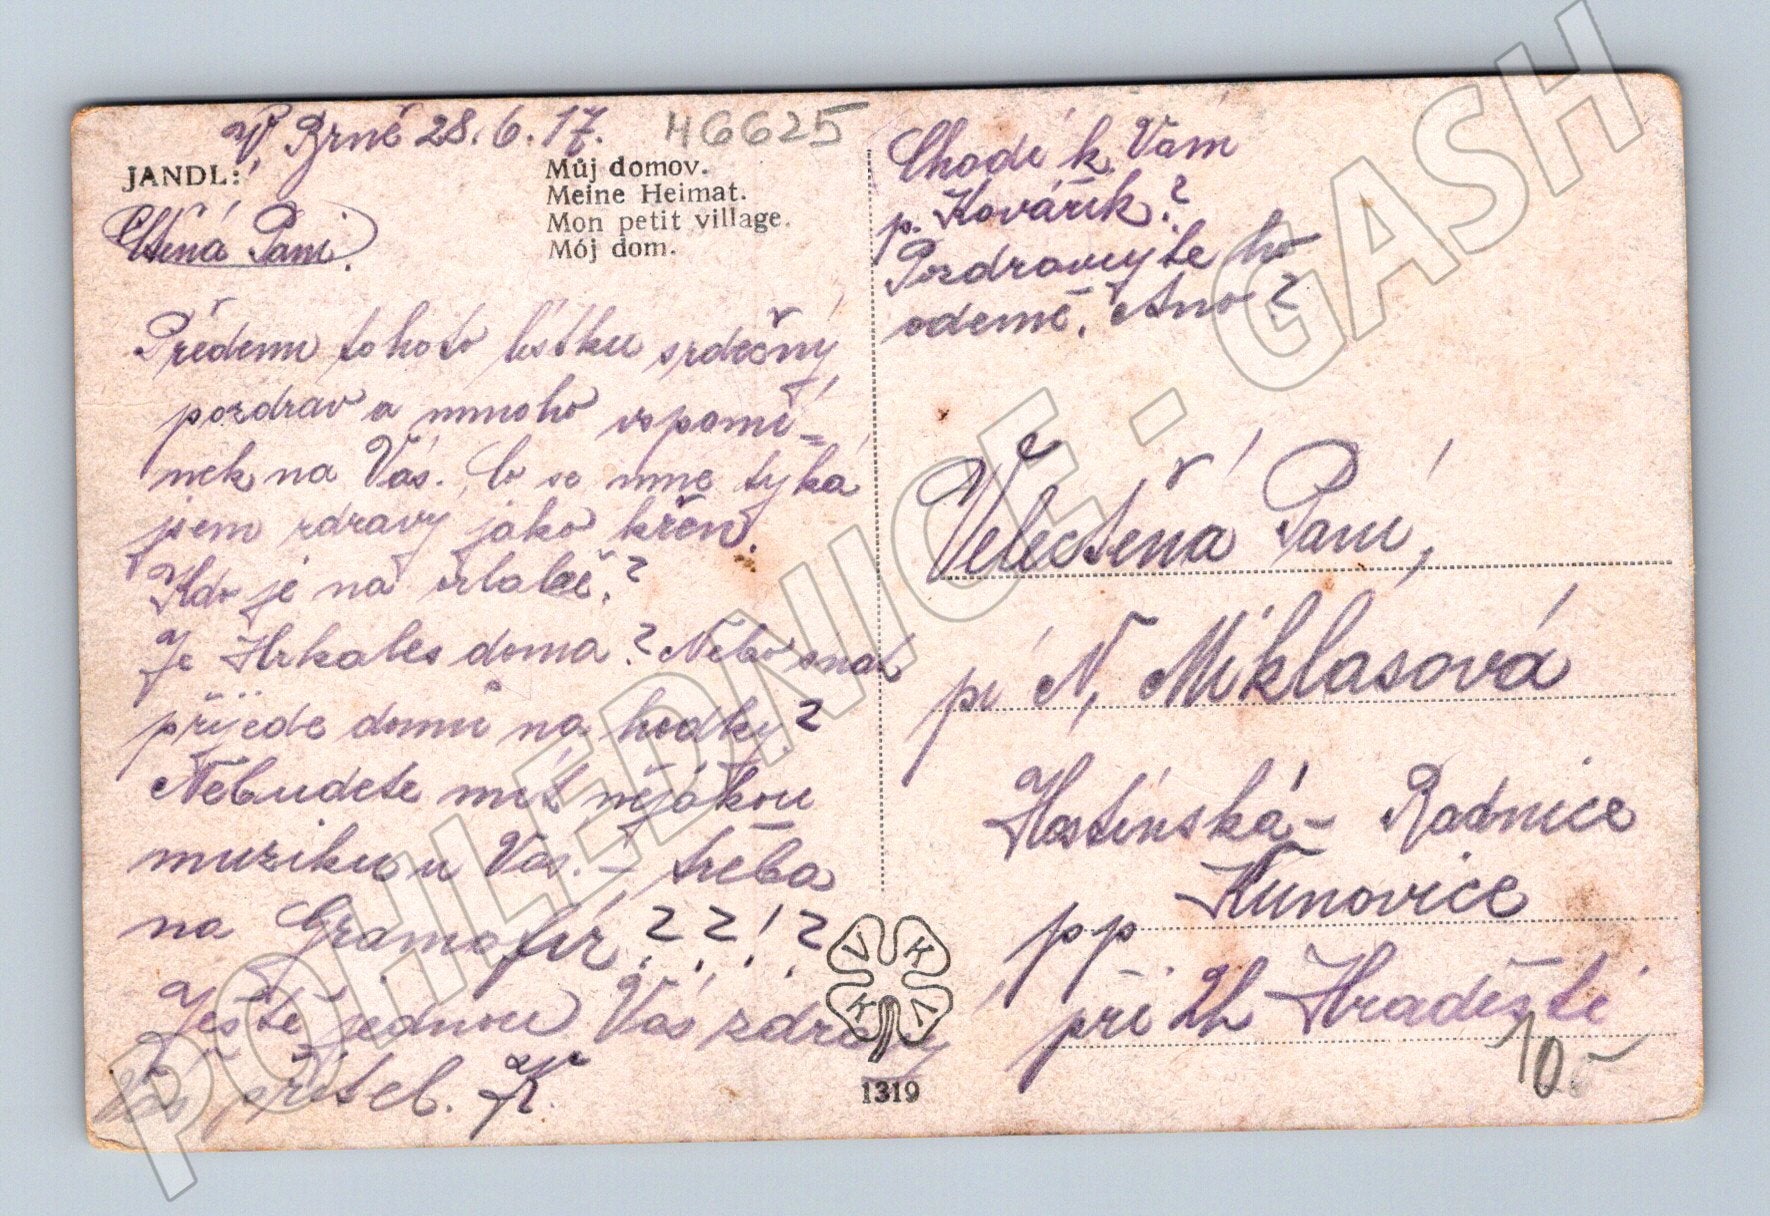 V Brně 28.6.17.
H6625
JANDL:
Můj domov.
Meine Heimat.
Mon petit village.
Mój dom.
Ctěná Paní.
Předem tohoto lístku srdečný
pozdrav a mnoho vspomí=
nek na Vás. Co se mne týká
jsem zdravý jako křen.
Kdo je na urlabě?
Je Hrkales doma? Nebo snad
přijede domů na hodky?
Nebudete mít nějákou
muziku u Vás. – třeba
na Gramofír ? ? ! ?
Ještě jednou Vás zdraví
Váš přítel. K.
Chodí k Vám
p. Kovářík?
Pozdravujte ho
odemě. Ano?
Velectěná Paní,
pí N. Miklasová
Hostinská – Radnice
Kunovice
pp
při Uh Hradišti
V K K V
1319
10.-
POHLEDNICE - GASH